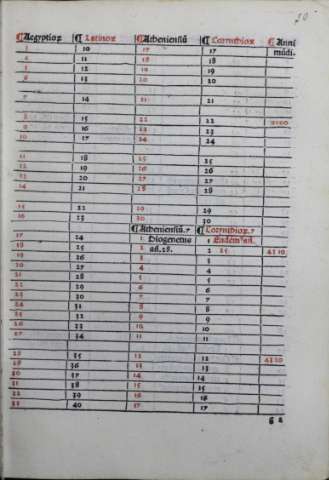 ¶Aegyptioꝝ ¶Latinoꝝ ¶Atheniensiū ¶Corynthioꝝ ¶Anni
mūdi.
10 17 17
11 18 18
12 19 19
6 13 20 20
7 14 21 21
8 15 22 22
9 16 23 23
10 17 24 24
11 18 25 25
12 19 26 26
13 20 27 27
14 21 28 28
15 22 29 29
16 23 30 30
¶Atheniensiū. ¶Corynthioꝝ.
17 24 1 Diogenetus 1
18 25 2 añ.28. 2 35 4310
19 26 3 3
20 27 4 4
21 28 5 5
22 29 6 6
23 30 7 7
24 31 8 8
25 32 9 9
26 33 10 10
27 34 11 11
28 35 12 12 4320
29 36 13 13
30 37 14 14
31 38 15 15
32 39 16 16
33 40 17 17